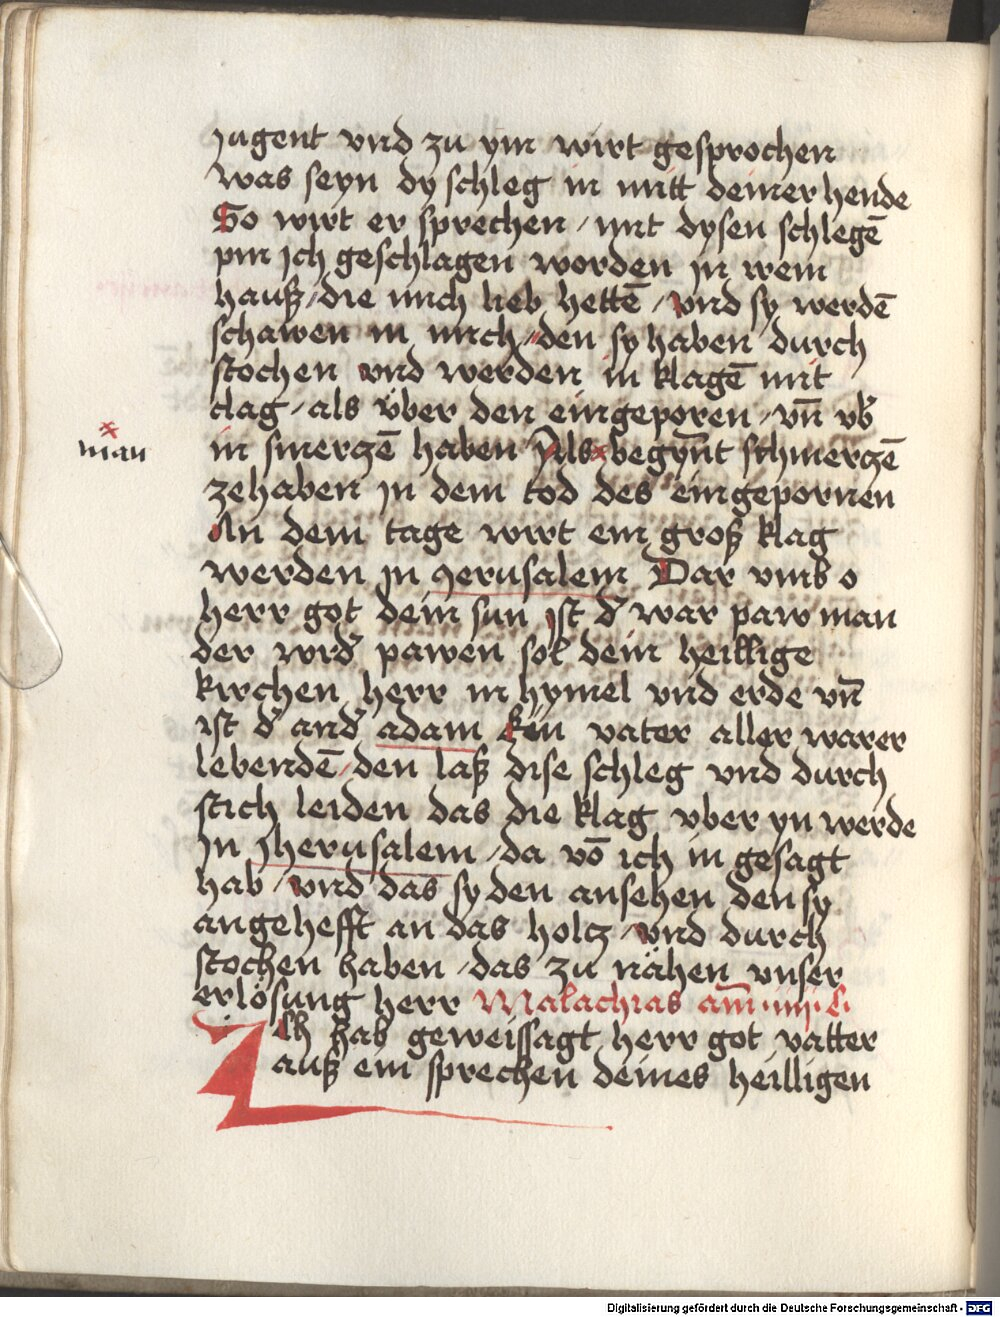 jugent vnd zu ym wirt gesprochen
was seyn dy schleg in mitt deiner hende
So wirt er sprechen / mit dysen schlegē
pin jch geschlagen worden jn meim
hauß / die mich lieb hettē / vnd sy werdē
schawen in mich / den sy haben durch
stochen vnd werden in klagē mit
clag / als v̈ber den eingeporen / vn̄ vb̾
in smerczē haben Als begyn̄t schmerczē
man
zehaben jn dem tod des eingepornen
An dem tage wirt ein groß klag
werden jn jerusalem Dar vmb o
herr got dein sun jst d̾ war paw man
der wird̾ pawen sol dein heillige
kirchen herr in hymel vnd erde vn̄
ist d̾ and̾ adam Ein vater aller warer
lebendē / den laß dise schleg vnd durch
stich leiden das die klag vber yn werde
jn jherusalem / da vō ich in gesagt
hab / vnd das sy den ansehen den sy
angehefft an das holcz / vnd durch
stochen haben / das zu nähen vnser
erlösung herr Malachias am̄
Ich hab geweissagt herr got vatter
auß ein sprechen deines heilligen
Digitalisierung gefördert durch die Deutsche Forschungsgemeinschaft - DFG